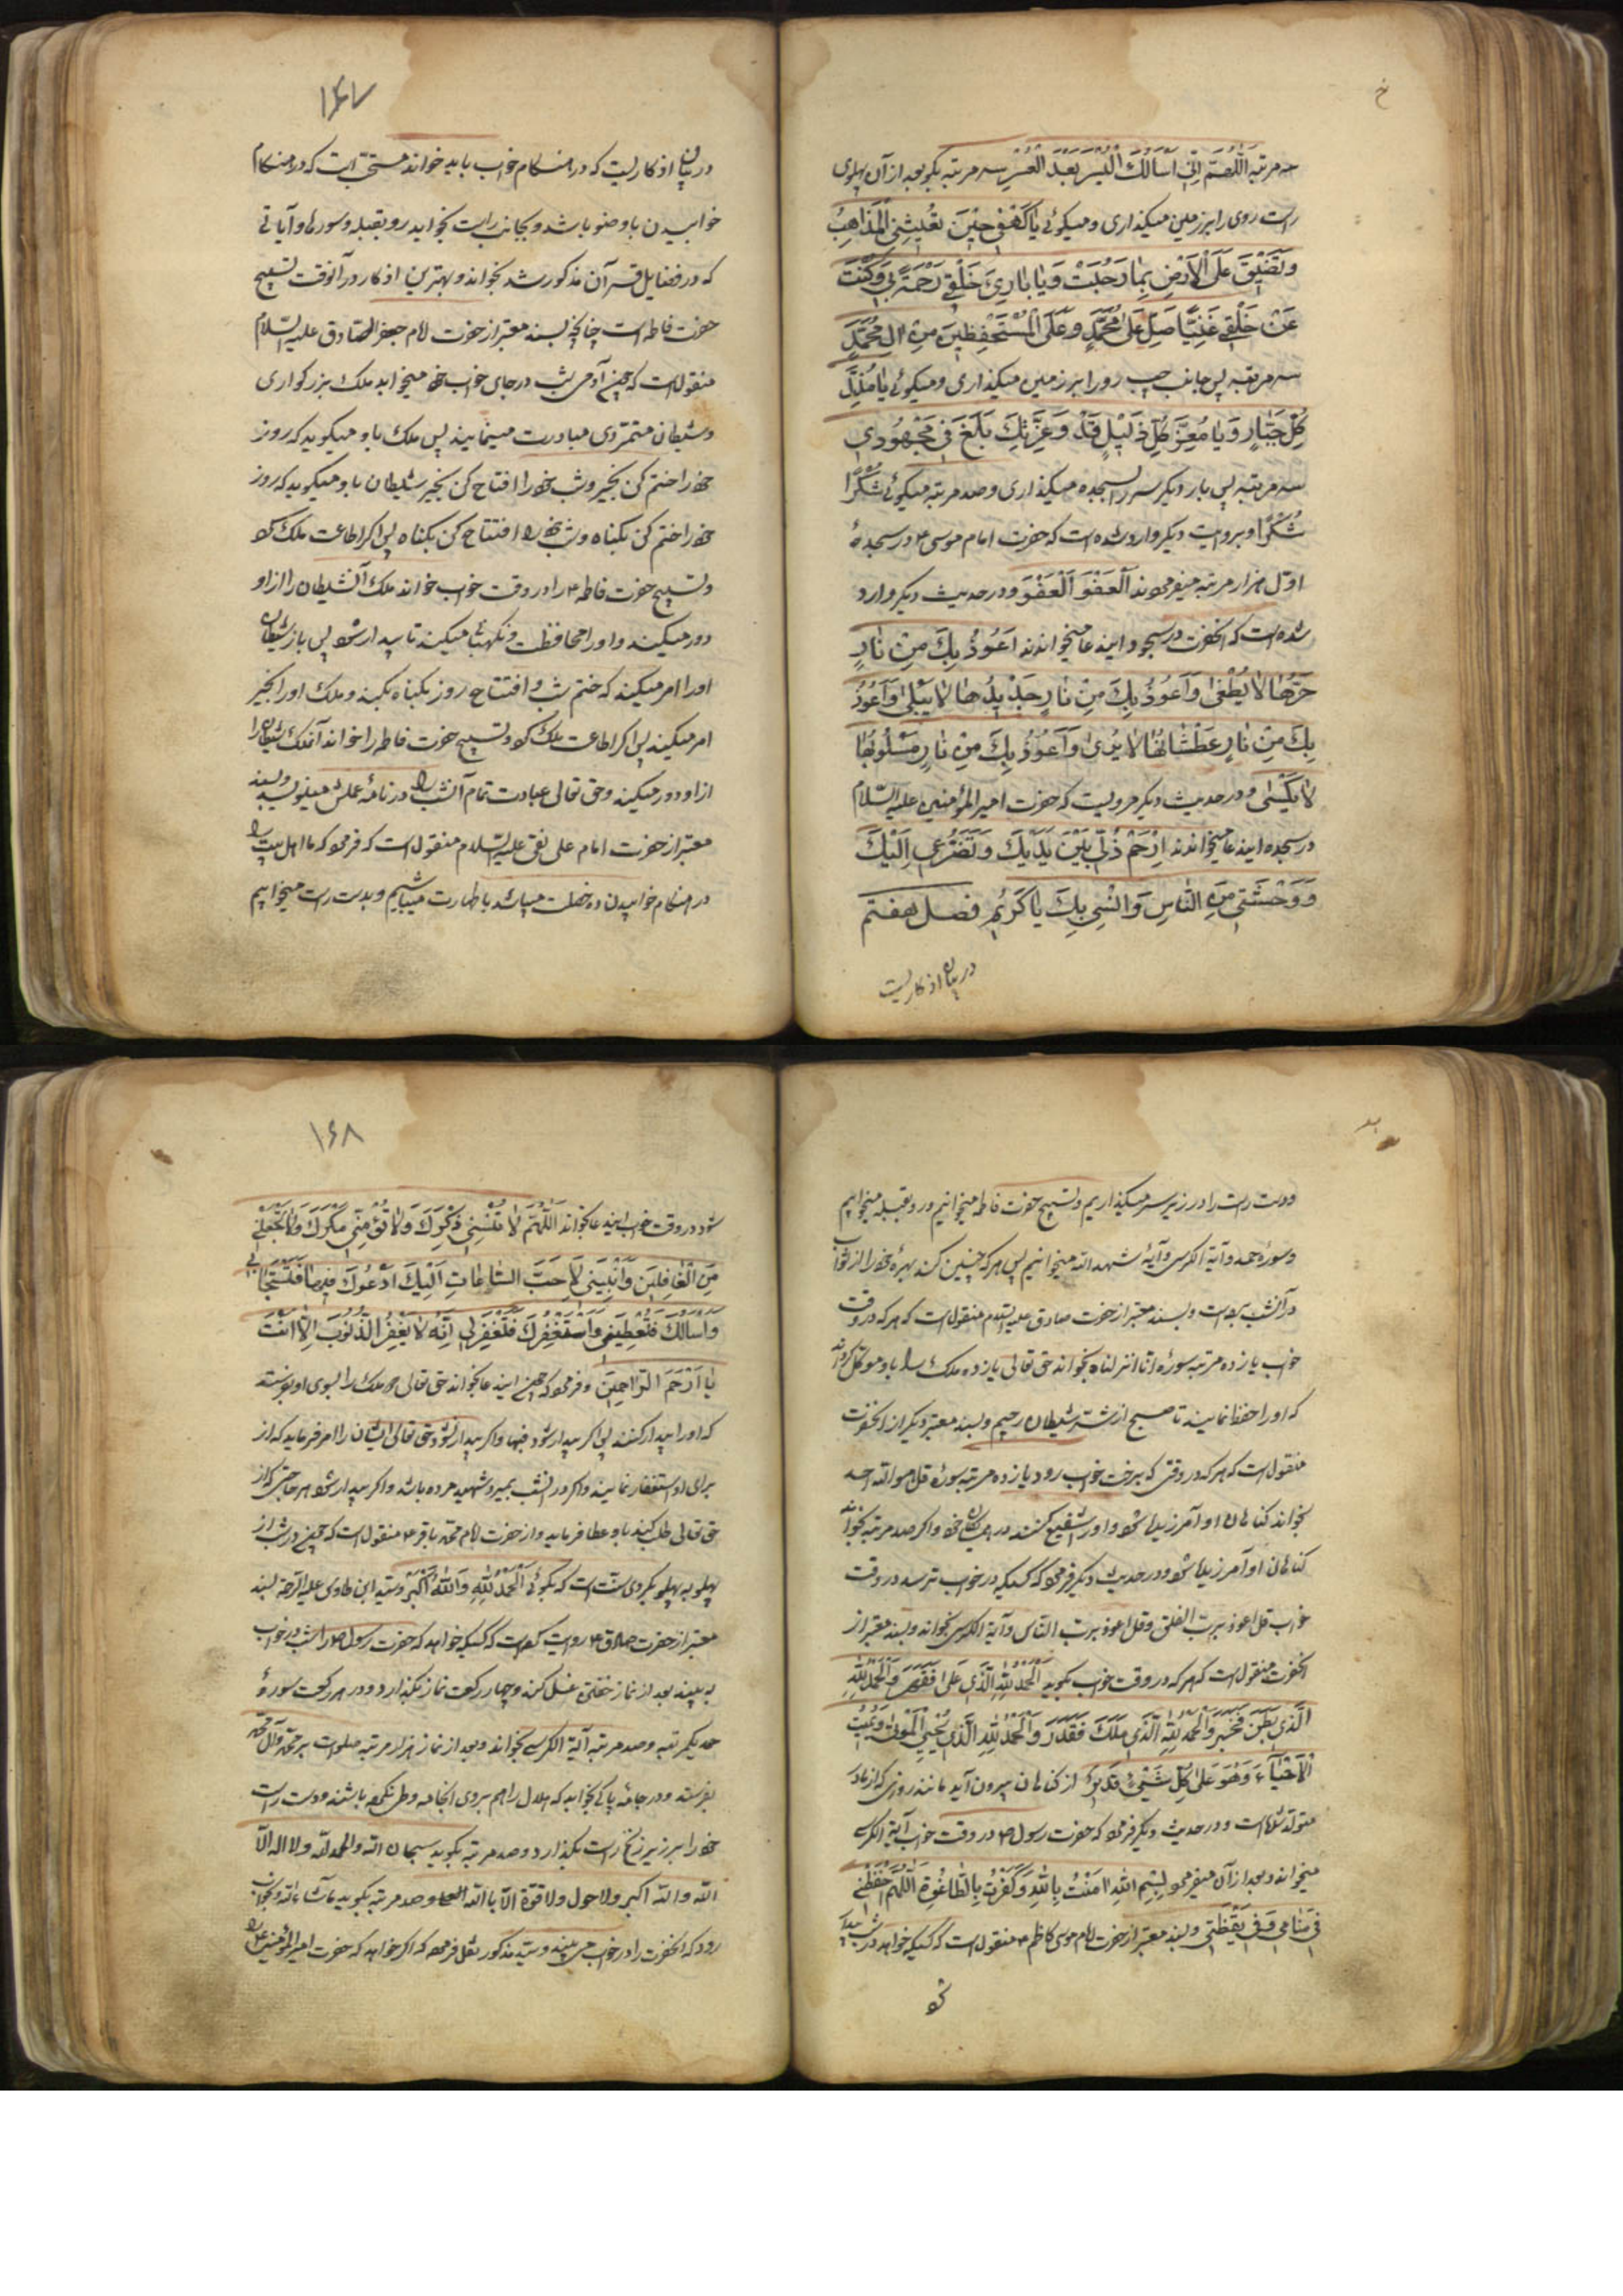 سه مرتبه اَللّهُمَّ اِنّی اَسْاَلُكَ الْیُسْرَ بَعْدَ الْعُسْرِ سه مرتبه بکو بعد از آن پهلوی
راست روی را بر زمین میکذاری و میکوئی یا کَهْفی حینَ تُعْییٖنِی الْمَذاهِبُ
وَ تَضیٖقُ عَلَیَّ الْاَرْضُ بِمٰا رَحُبَتْ وَیٰا بٰارِیَٔ خَلْقی رَحْمَةً بی وَ کُنْتَ
عَنْ خَلْقی غَنِیًّا صَلِّ عَلیٰ مُحَمَّدٍ وَ عَلَی الْمُسْتَحْفِظینَ مِنْ الِ مُحَمَّدٍ
سه مرتبه پس جانب چپ رو را بر زمین میکذاری و میکوئی یٰا مُذِلَّ
کُلِّ جَبّٰارٍ وَ یٰا مُعِزَّ کُلِّ ذَلیٖلٍ قَدْ وَ عِزَّتِكَ بَلَغَ بی مَجْهُودی
سه مرتبه پس بار دیکر سر را بسجده میکذاری و صد مرتبه میکوئی شُکْرًا
شُکْرًا و بروایت دیکر وارد شده است که حضرت امام موسی ع در سجدهٔ
اول هزار مرتبه میفرمودند اَلْعَفْوَ اَلْعَفْوَ و در حدیث دیکر وارد
شده است که انحضرت در سجود ایندعا میخواندند اَعُوذُ بِكَ مِنْ نٰارٍ
حَرُّهٰا لاٰ یُطْفٰی وَ اَعُوذُ بِكَ مِنْ نٰارٍ جَدیٖدُهٰا لاٰ یَبْلیٰ وَ اَعُوذُ
بِكَ مِنْ نٰارٍ عَطْشٰانُهٰا لاٰ یُرْویٰ وَ اَعُوذُ بِكَ مِنْ نٰارٍ مَسْلُوبُهٰا
لاٰ یُکْسیٰ و در حدیث دیکر مرویست که حضرت امیر المؤمنین علیه السلام
در سجده ایندعا میخواندند اِرْحَمْ ذُلّی بَیْنَ یَدَیْكَ وَ تَضَرُّعی اِلَیْكَ
وَ وَحْشَتی مِنَ النّٰاسِ وَ اُنْسی بِكَ یٰا کَریٖمُ فصل هفتم
در بیان اذکاریست
۱۶۷
در بیان اذکاریست که در هنکام خواب باید خواند مستحب است که در هنکام
خوابیدن با وضو باشد و بجانب راست بخوابد رو بقبله و سورها و آیاتی
که در فضایل قرآن مذکور شد بخواند و بهترین اذکار در آنوقت تسبیح
حضرت فاطمه است چنانچه بسند معتبر از حضرت امام جعفر الصادق علیه السلام
منقول است که چون آدمی شب در جای خواب خود میخوابد ملك بزرکواری
و شیطان متمردی مبادرت مینمایند پس ملك باو میکوید که روز
خود را ختم کن بخیر و شب خود را افتتاح کن بخیر شیطان باو میکوید که روز
خود را ختم کن بکناه و شب خود را افتتاح کن بکناه پس اکر اطاعت ملك کرد
و تسبیح حضرت فاطمه ع را در وقت خواب خواند ملك آن شیطان را از او
دور میکند و او را محافظت و نکهبانی میکند تا بیدار شود پس باز شیطان
او را امر میکند که ختم شب و افتتاح روز بکناه بکند و ملك او را بخیر
امر میکند پس اکر اطاعت ملك کرد و تسبیح حضرت فاطمه را خواند آنملك شیطان را
از او دور میکند و حق تعالی عبادت تمام آنشب را در نامهٔ عملش مینویسد و بسند
معتبر از حضرت امام علی نقی علیه السلام منقول است که فرمود که ما اهل بیت را
در هنکام خوابیدن ده خصلت میباشد با طهارت میباشیم و بدست راست میخوابیم
و دست راست را در زیر سر میکذاریم و تسبیح حضرت فاطمه میخوانیم و رو بقبله میخوابیم
و سورهٔ حمد و آیة الکرسی و آیهٔ شهد الله میخوانیم پس هر که چنین کند بهرهٔ خود را از ثواب
در آنشب برده است و بسند معتبر از حضرت صادق علیه السلام منقول است که هر که در وقت
خواب یازده مرتبه سورهٔ انا انزلناه بخواند حق تعالی یازده ملك را باو موکل کرداند
که او را حفظ نمایند تا صبح از شر شیطان رجیم و بسند معتبر دیکر از انحضرت
منقول است که هر که در وقتی که برخت خواب رود یازده مرتبه سورهٔ قل هو الله احد
بخواند کناهان او آمرزیده شود و او را شفیع کنند در همسایکان خود و اکر صد مرتبه بخواند
کناهان او آمرزیده شود و در حدیث دیکر فرمود که کسیکه در خواب ترسد در وقت
خواب قل اعوذ برب الفلق و قل اعوذ برب الناس و آیة الکرسی بخواند و بسند معتبر از
انحضرت منقول است که هر که در وقت خواب بکوید اَلْحَمْدُ لِلّٰهِ الَّذی عَلا فَقَهَرَ وَ الْحَمْدُ لِلّٰهِ
الَّذی بَطَنَ فَخَبَرَ وَ الْحَمْدُ لِلّٰهِ الَّذی مَلَكَ فَقَدَرَ وَ الْحَمْدُ لِلّٰهِ الَّذی یُحْیِی الْمَوْتیٰ وَ یُمیتُ
الْاَحْیٰاءَ وَ هُوَ عَلیٰ کُلِّ شَیْءٍ قَدیٖرٌ از کناهان بیرون آید مانند روزی که از مادر
متولد شده است و در حدیث دیکر فرمود که حضرت رسول ص در وقت خواب آیة الکرسی
میخواند و بعد از آن میفرمود بِسْمِ اللّٰهِ امَنْتُ بِاللّٰهِ وَ کَفَرْتُ بِالطّٰاغُوتِ اَللّٰهُمَّ احْفَظْنی
فی مَنٰامی وَ فی یَقْظَتی و بسند معتبر از حضرت امام موسی کاظم ع منقول است که کسیکه خواهد در شب بیدار
شو
۱۶۸
شود در وقت خواب ایندعا بخواند اَللّٰهُمَّ لاٰ تُنْسِنی ذِکْرَكَ وَ لاٰ تُؤْمِنّی مَکْرَكَ وَ لاٰ تَجْعَلْنی
مِنَ الْغٰافِلیٖنَ وَ انْبِهْنی لِاَحَبِّ السّٰاعٰاتِ اِلَیْكَ اَدْعُوكَ فیٖهٰا فَتَسْتَجیبَ لی
وَ اَسْاَلُكَ فَتُعْطِیَنی وَ اَسْتَغْفِرُكَ فَتَغْفِرَ لی اِنَّهُ لاٰ یَغْفِرُ الذُّنُوبَ اِلاّٰ اَنْتَ
یٰا اَرْحَمَ الرّٰاحِمیٖنَ و فرمود که چون ایندعا بخواند حق تعالی دو ملك را بسوی او بفرستد
که او را بیدار کنند پس اکر بیدار شود فبها و اکر بیدار نشود حق تعالی ایشان را امر فرماید که از
برای او استغفار نمایند و اکر در انشب بمیرد شهید مرده باشد و اکر بیدار شود هر حاجتی که از
حق تعالی طلب کند باو عطا فرماید و از حضرت امام محمد باقر ع منقول است که چون در شب از
پهلو به پهلو بکردی سنت است که بکوئی اَلْحَمْدُ لِلّٰهِ وَ اللّٰهُ اَکْبَرُ و سید ابن طاوس علیه الرحمه بسند
معتبر از حضرت صادق ع روایت کرده است که کسیکه خواهد که حضرت رسول ص را شب در خواب
به بیند بعد از نماز خفتن غسل کند و چهار رکعت نماز بکذارد و در هر رکعت سورهٔ
حمد یکمرتبه و صد مرتبه آیة الکرسی بخواند و بعد از نماز هزار مرتبه صلوات بر محمد و آل محمد
بفرستد و در جامهٔ پاکی بخوابد که حلال را هم بروی انجامه وطی نکرده باشند و دست راست
خود را بر زیر زنخ راست بکذارد و صد مرتبه بکوید سبحان الله و الحمد لله و لا اله الا
الله و الله اکبر و لا حول و لا قوة الا بالله و صد مرتبه بکوید ما شاء الله و بخواب
رود که انحضرت را در خواب می بیند و سید مذکور نقل فرموده که اکر خواهد که حضرت امیر المؤمنین ع را